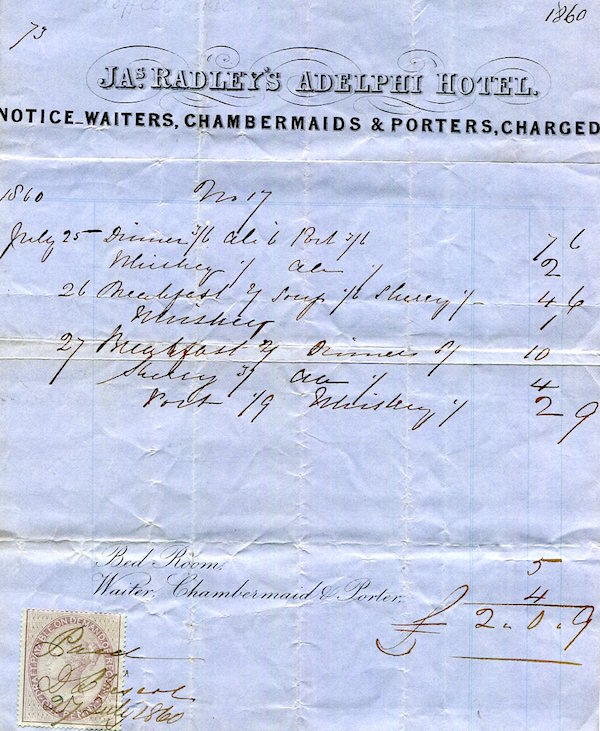 1860
73
JAS. RADLEY'S ADELPHI HOTEL.
NOTICE_WAITERS, CHAMBERMAIDS & PORTERS, CHARGED
1860 No 17
July 25 Dinner 3/6 Ale 6 Port 3/6 7 6
Whiskey 1/ Ale 1/ 2
26 Breakfast 2/ Soup 1/6 Sherry 1/- 4 6
Whiskey 1
27 Breakfast 2/ Dinners 8/ 10
Sherry 3/ Ale 1/ 4
Port 1/9 Whiskey 1/ 2 9
Bed Room. 5
Waiter, Chambermaid & Porter. 4
£ 2.0.9
DRAFT PAYABLE ON DEMAND OR RECEIPT
Paid
27 July 1860